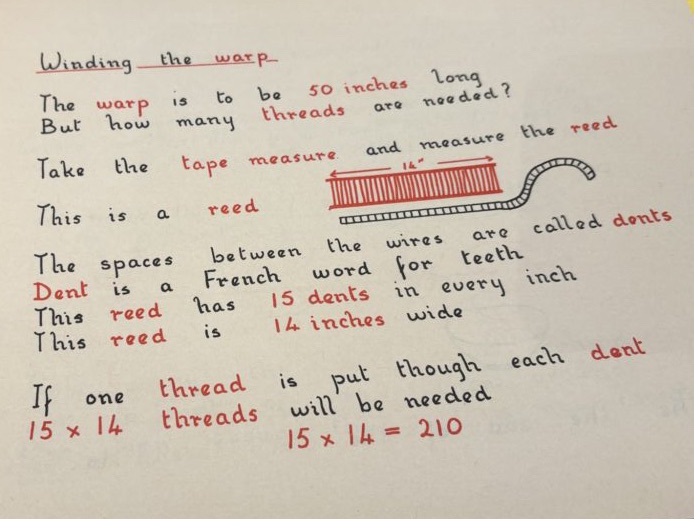 Winding the warp
The warp is to be 50 inches long
But how many threads are needed?
Take the tape measure and measure the reed
14"
This is a reed
The spaces between the wires are called dents
Dent is a French word for teeth
This reed has 15 dents in every inch
This reed is 14 inches wide
If one thread is put though each dent
15 x 14 threads will be needed
15 x 14 = 210